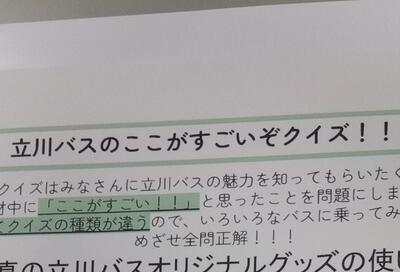 立川バスのここがすごいぞクイズ！！
クイズはみなさんに立川バスの魅力を知ってもらいたく
材中に「ここがすごい！！」と思ったことを問題にしま
てクイズの種類が違うので、いろいろなバスに乗ってみ
めざせ全問正解！！！
の立川バスオリジナルグッズの使い